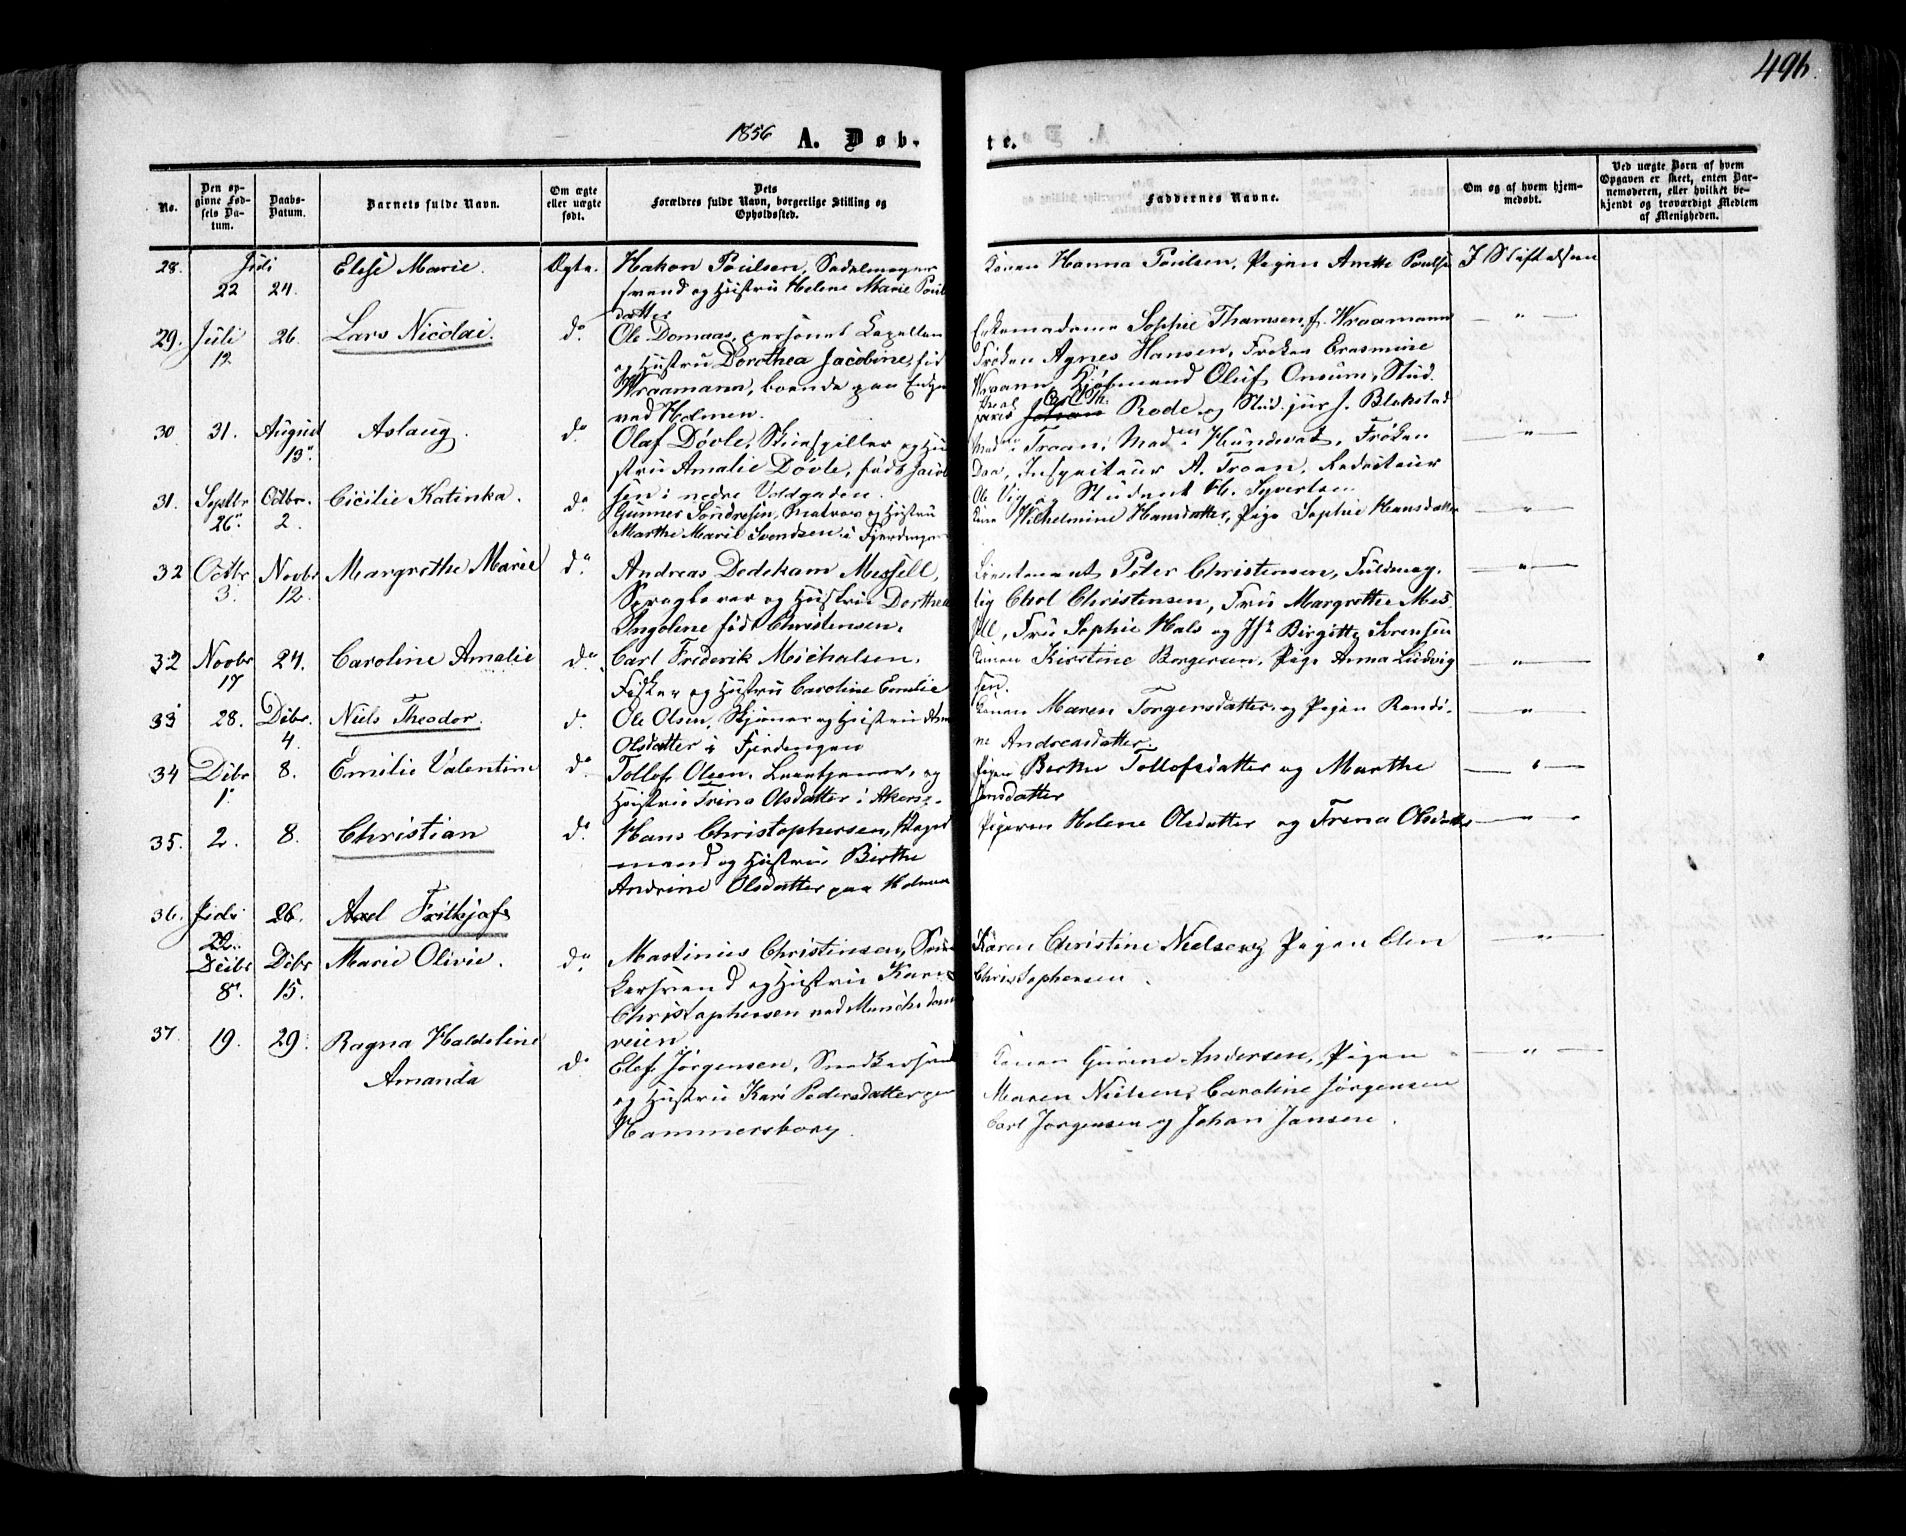 496.
1856 A. Døb-
te.
No.
Den op-
givne Fød-
sels Da-
tum.
Daabs-
Datum.
Barnets fulde Navn.
Om ægte
eller uægte
født.
Dets
Forældres fulde Navn, borgerlige Stilling og
Opholdssted.
Faddernes Navne.
Om og af hvem hjem-
medøbt.
Ved uægte Børn af hvem
Opgaven er skeet, enten Bar-
nemoderen, eller hvilket be-
kjendt og troværdigt Medlem
af Menigheden.
28. Juli Elise Marie. Ægte. Hakon Poulsen, Sadelmager
22 24. svend og Hustru Helene Marie Poul
datter
Konen Hanna Poulsen, Pigen Anette Poulse
I Stiftelsen
29. Juli 26. Lars Nicolai. do Ole Domaas, personel Capellan
12 og Hustru Dorothea Jacobine, fød
Wraamann, boende paa Enger
ved Holmen.
Enkemadame Sophie Thamsen f. Wraamann
Frøken Agnes Hansen, Frøken Erasmine
Kjøbmand Oluf Onsum, Stud.
Carl Th.
Rode og Stud. jur. J. Blakstad
— " —
30 31. August Aslaug. do Olaf Døvle, Skuespiller og Hu
13. stru Amalie Døvle, født Jacob
sen i nedre Voldgaden.
Troan, Mad. Hundevat, Frøken
Daa, Inspecteur A. Troan, Redacteur
Ole Vig og Student Syvertsen
— " —
31. Septbr Octbr. Cicilie Katinka. do Gunner Søndresen, Matros og Hustru
26. 2. Marthe Marie Svendsen i Fjerdingen
Wilhelmine Hansdatter, Pige Sophie Hansdatter
— " —
32 Octbr Novbr Margrethe Marie do Andreas Dedekam Messell,
3. 12. og Hustru Dorthea
Ingolene født Christensen.
Lieutenant Peter Christensen, Fuldmæg-
tig Chol Christensen, Fru Margrethe Mes-
sell, Fru Sophie Hals og Jfr Birgitte Sørensen
— " —
32 Novbr 24. Caroline Amalie do Carl Frederik Michalsen.
17 Fisker og Hustru Caroline Emilie
Konen Kirstine Borgersen, Pige Anna Ludvig
sen.
— " —
33 28. Dcbr. Niels Theodor. do Ole Olsen, og Hustru Ane
4. Olsdatter i Fjerdingen
Konen Maren Torgersdatter og Pigen Randi-
ne Andreasdatter.
— " —
34 Dcbr 8. Emilie Valentine do Tollof Olsen, og
1. Hustru Trine Olsdatter i Akers-
Pigen Berthe Tollofsdatter og Marthe
Jensdatter
— " —
35. 2. 8. Christian do Hans Christophersen,
mand og Hustru Birthe
Andrine Olsdatter paa Holmen
Pigerne Helene Olsdatter og Trena Olsdatter
— " —
36. Juli 26. Axel Frithjof
22.
Decbr Dcbr Marie Olivie. do Mastinius Christensen,
8. 15. kersvend og Hustru Karen
Christophersen ved Munkedam
veien
Karen Christine Nielsen og Pigen Elen
Christophersen.
— " —
37. 19. 29. Ragna Haldoline do Elef Jørgensen, Snedkersvend
Amanda og Hustru Kari Pedersdatter paa
Hammersborg.
Konen Gurine Andersen, Pigen
Maren Nielsen, Caroline Jørgensen
Carl Jørgensen og Johan Jansen.
— " —